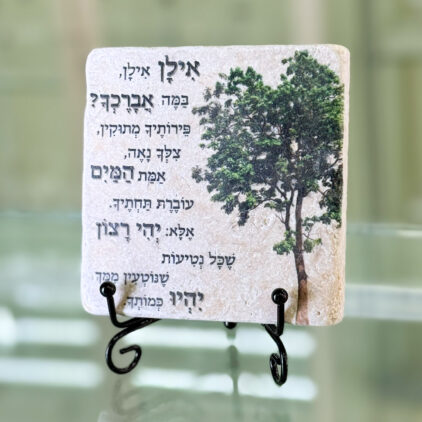 אִילָן אִילָן,
בַּמֶּה אֲבָרֶכְךָ?
פֵּירוֹתֶיךָ מְתוּקִין,
צִלְּךָ נָאֶה,
אַמַּת הַמַּיִם
עוֹבֶרֶת תַּחְתֶּיךָ.
אֶלָּא: יְהִי רָצוֹן
שֶׁכָּל נְטִיעוֹת
שֶׁנּוֹטְעִין מִמְּךָ
יִהְיוּ כְּמוֹתְךָ.